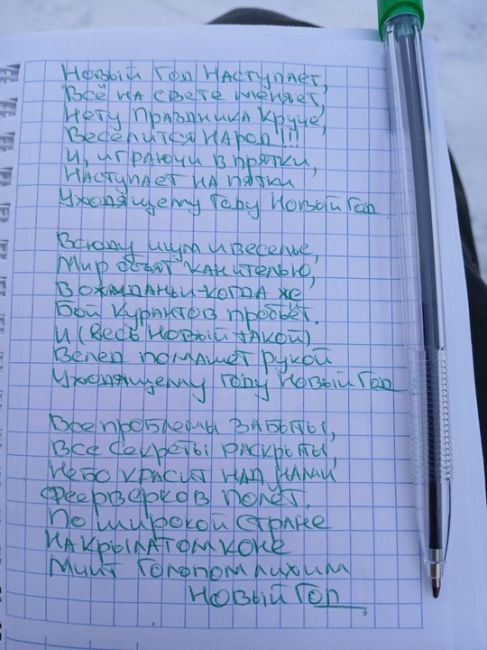 Новый Год Наступает,
Всё на свете меняет,
Нету Праздника Круче,
Веселится Народ!!!
И, играючи в прятки,
Наступает на пятки
Уходящему Году Новый Год
Всюду шум и веселье,
Мир объят канителью,
В ожиданьи-когда же
Бой Курантов пробьёт.
И (весь Новый такой)
Вслед помашет рукой
Уходящему Году Новый Год
Все проблемы забыты,
Все секреты раскрыты,
Небо красит над нами
Фееерверков полёт.
По широкой стране
На крылатом коне
Мчит Голопом лихим
Новый Год